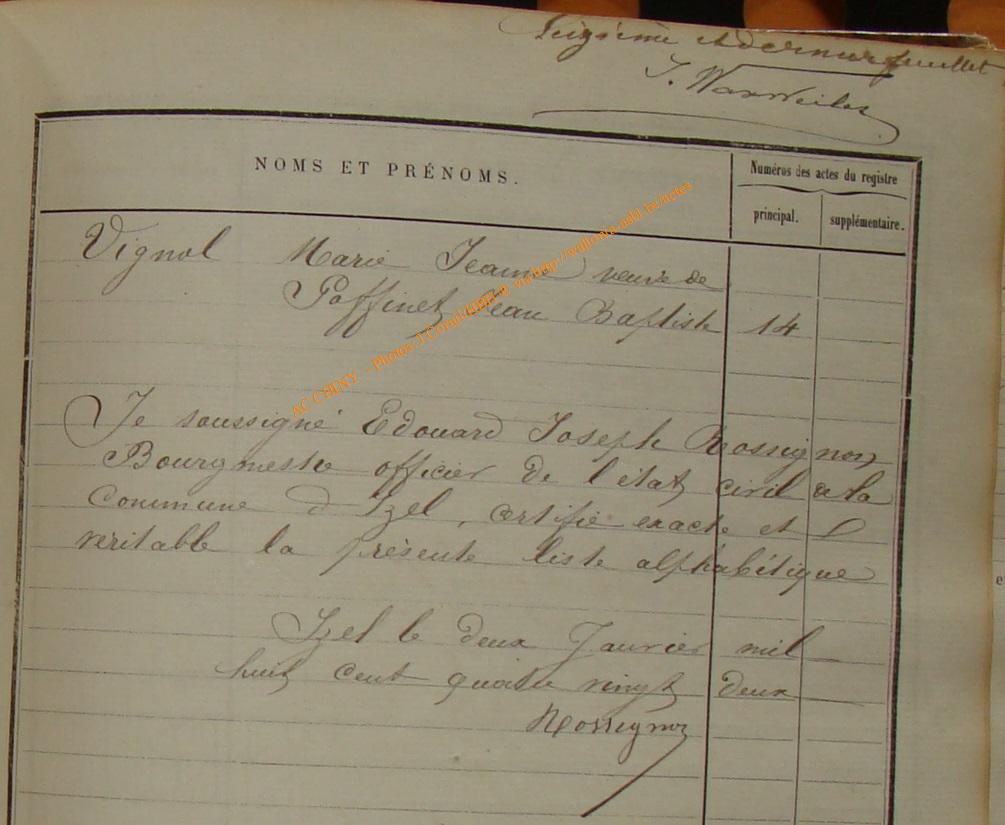 Seizième et dernier feuillet
J. Warweiler
NOMS ET PRÉNOMS.
Numéros des actes du registre
principal.
supplémentaire.
Vignol Marie Jeanne veuve de
Poffinet Jean Baptiste 14
Je soussigné Edouard Joseph Rossignon
Bourgmestre officier de l'état civil de la
Commune d'Izel, certifie exacte et
veritable la présente liste alphabétique
Izel le deux Janvier mil
huit cent quatre vingt deux
Rossignon
AC CHINY - Photos via http://wallonia-asbl.be/actes